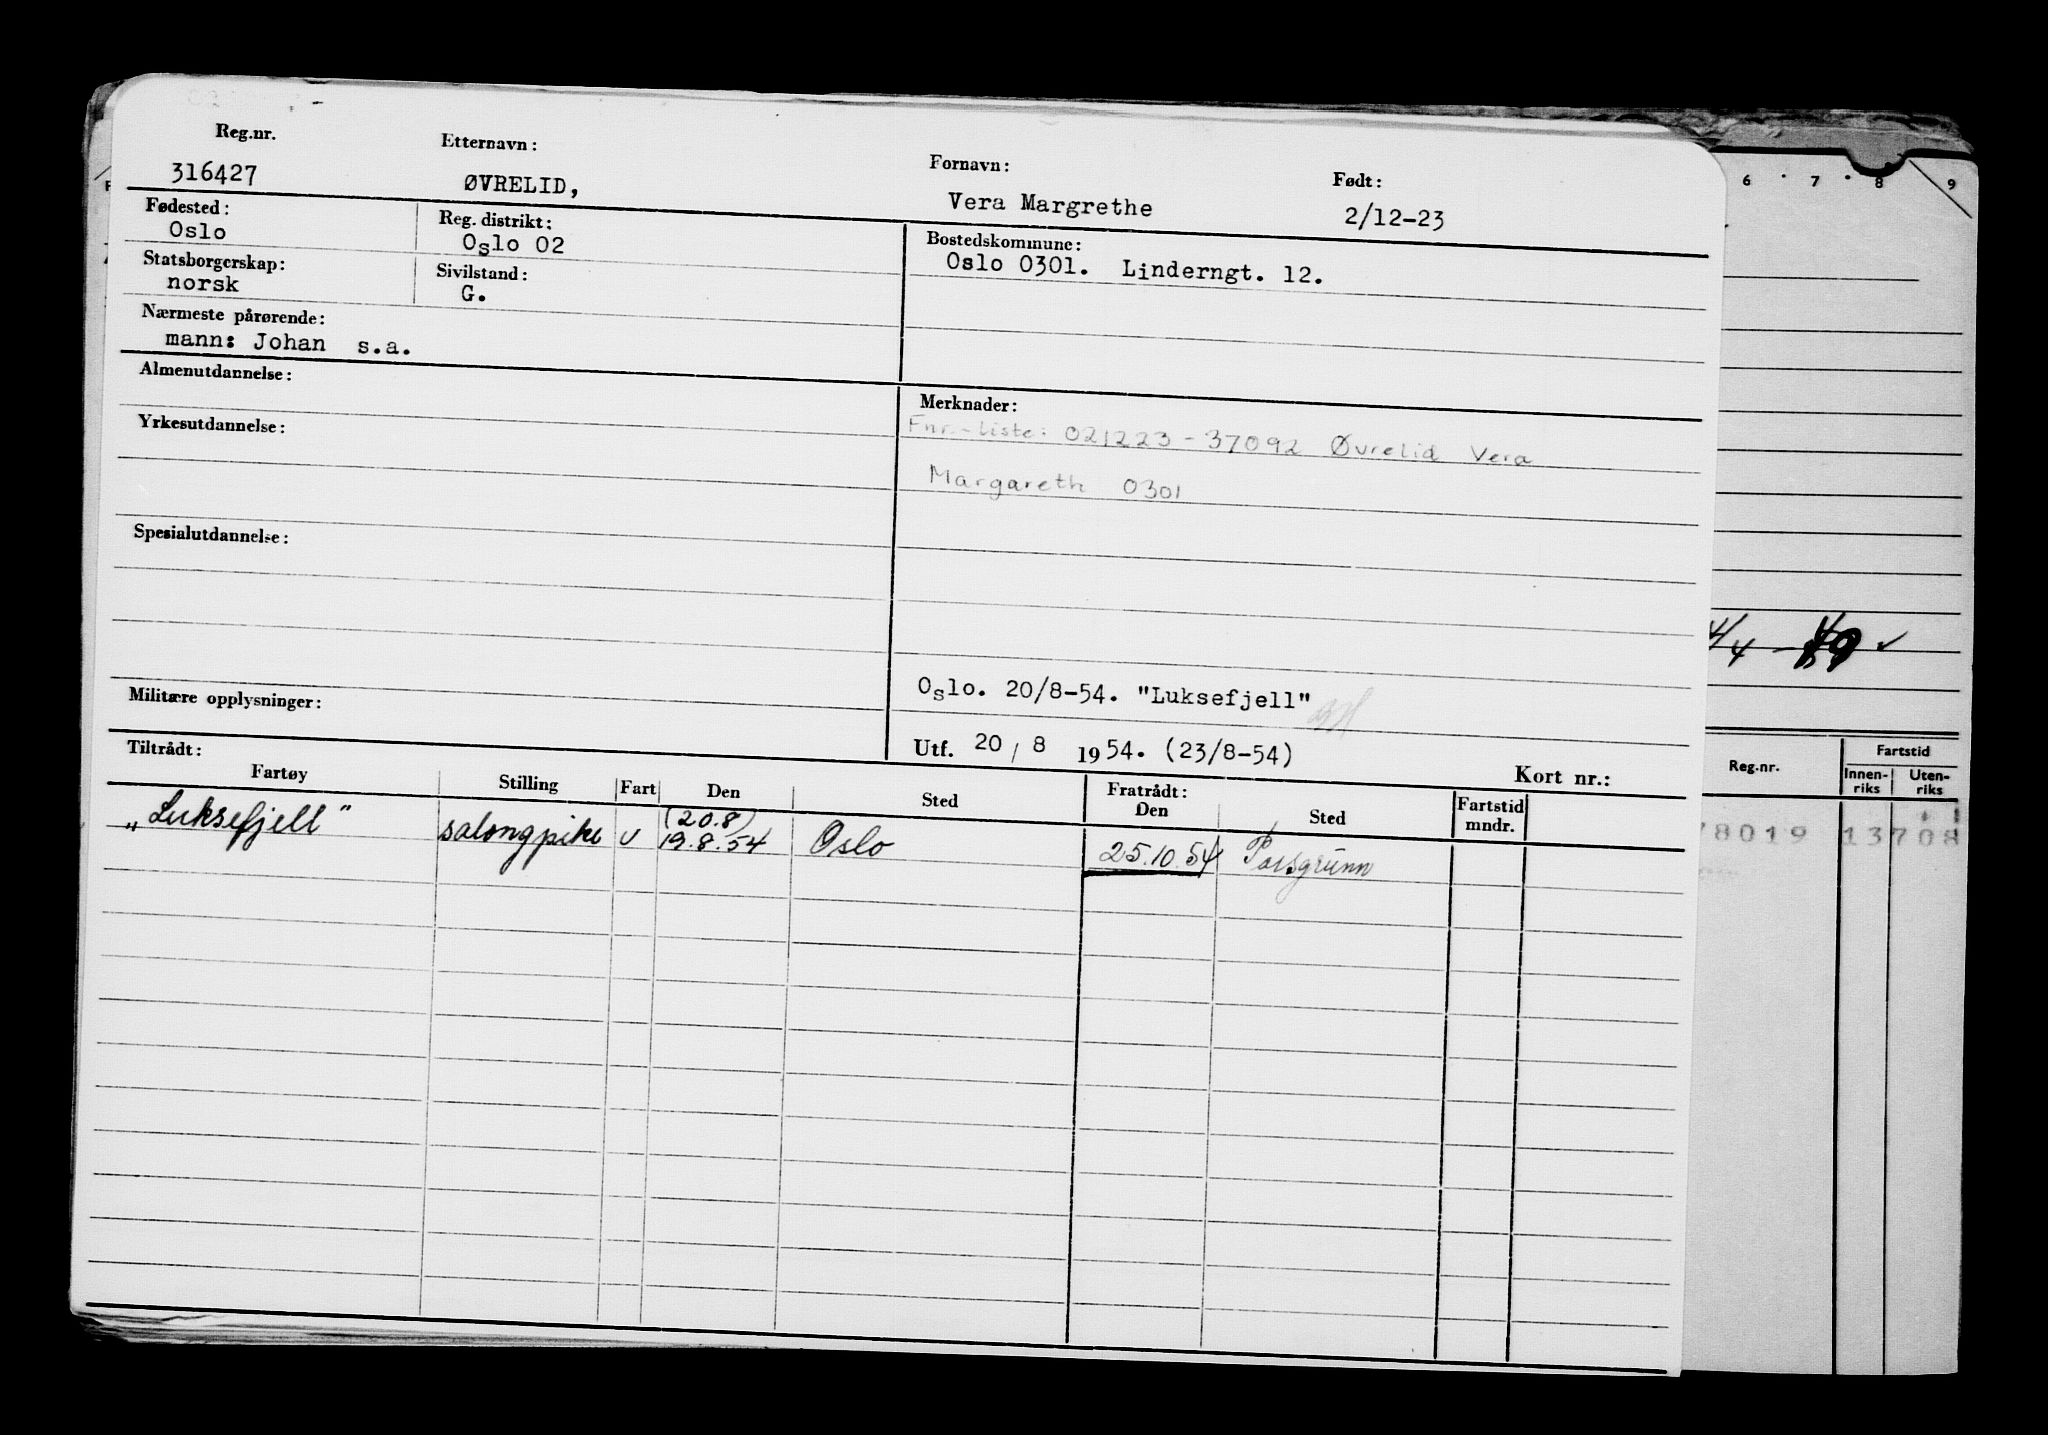 Reg.nr. Etternavn: Fornavn: Født:
316427 ØVRELID, Vera Margrethe 2/12-23
Fødested: Reg. distrikt: Bostedskommune:
Oslo Oslo 02 Oslo 0301. Linderngt. 12.
Statsborgerskap: Sivilstand:
norsk G.
Nærmeste pårørende:
mann: Johan s.a.
Almenutdannelse: Merknader:
Fnr.-liste: 021223-37092 Øvrelid Vera
Yrkesutdannelse:
Margareth 0301
Spesialutdannelse:
Oslo. 20/8-54. "Luksefjell"
Militære opplysninger:
Utf. 20 / 8 1954. (23/8-54) Kort nr.:
Tiltrådt: Fratrådt:
Fartøy Stilling Fart Den Sted Den Sted Fartstid mndr.
(20.8)
„Luksefjell" salongpike U 19.8.54 Oslo 25.10.54 Porsgrunn
6 7 8 9
4/4
Reg.nr. Fartstid
Innen-riks Uten-riks
78019 13708